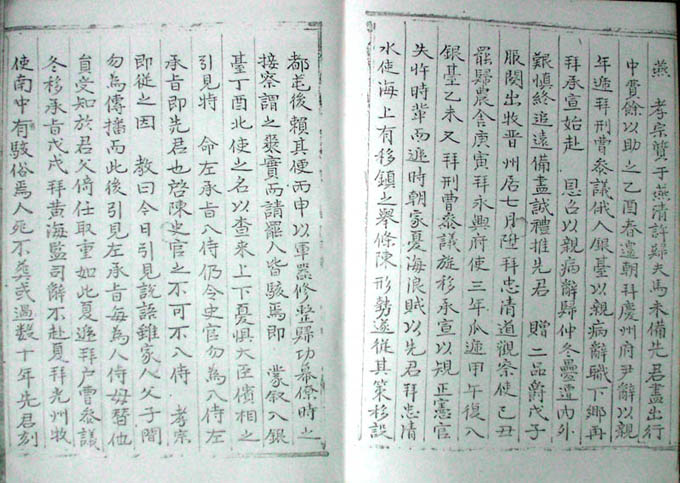 燕　孝宗質于燕清許歸夫馬未備先君盡出行
中資餘以助之乙酉春還朝拜慶州府尹辭以親
年遞拜刑曹參議俄入銀臺以親病辭職下鄉再
拜承宣始赴　恩召以親病辭歸仲冬疊遭內外
艱慎終追遠備盡誠禮推先君　贈二品爵戊子
服闋出牧晋州居七月陞拜忠清道觀察使己丑
罷歸農舍庚寅拜永興府使三年瓜遞甲午復入
銀臺乙未又拜刑曹參議旋移承宣以規正憲官
失忤時輩而遞時朝家憂海浪賊以先君拜忠清
水使海上有移鎮之舉條陳形勢遂從其策移設
都毛後賴其便丙申以軍器修整歸功幕僚時之
接察謂之褒實而請罷人皆駭焉即　蒙敘入銀
臺丁酉北使之名以查来上下憂惧大臣儐相之
引見特　命左承旨入侍仍令史官勿為入侍左
承旨即先君也啓陳史官之不可不入侍　孝宗
即從之因　教曰今日引見說話雖家人父子間
勿為傳播而此後引見左承旨每為入侍毋替他
員受知於君父倚任取重如此夏遞拜戶曹參議
冬移承旨戊戌拜黃海監司辭不赴夏拜光州牧
使南中有駭俗焉人死不葬或過数十年先君刻